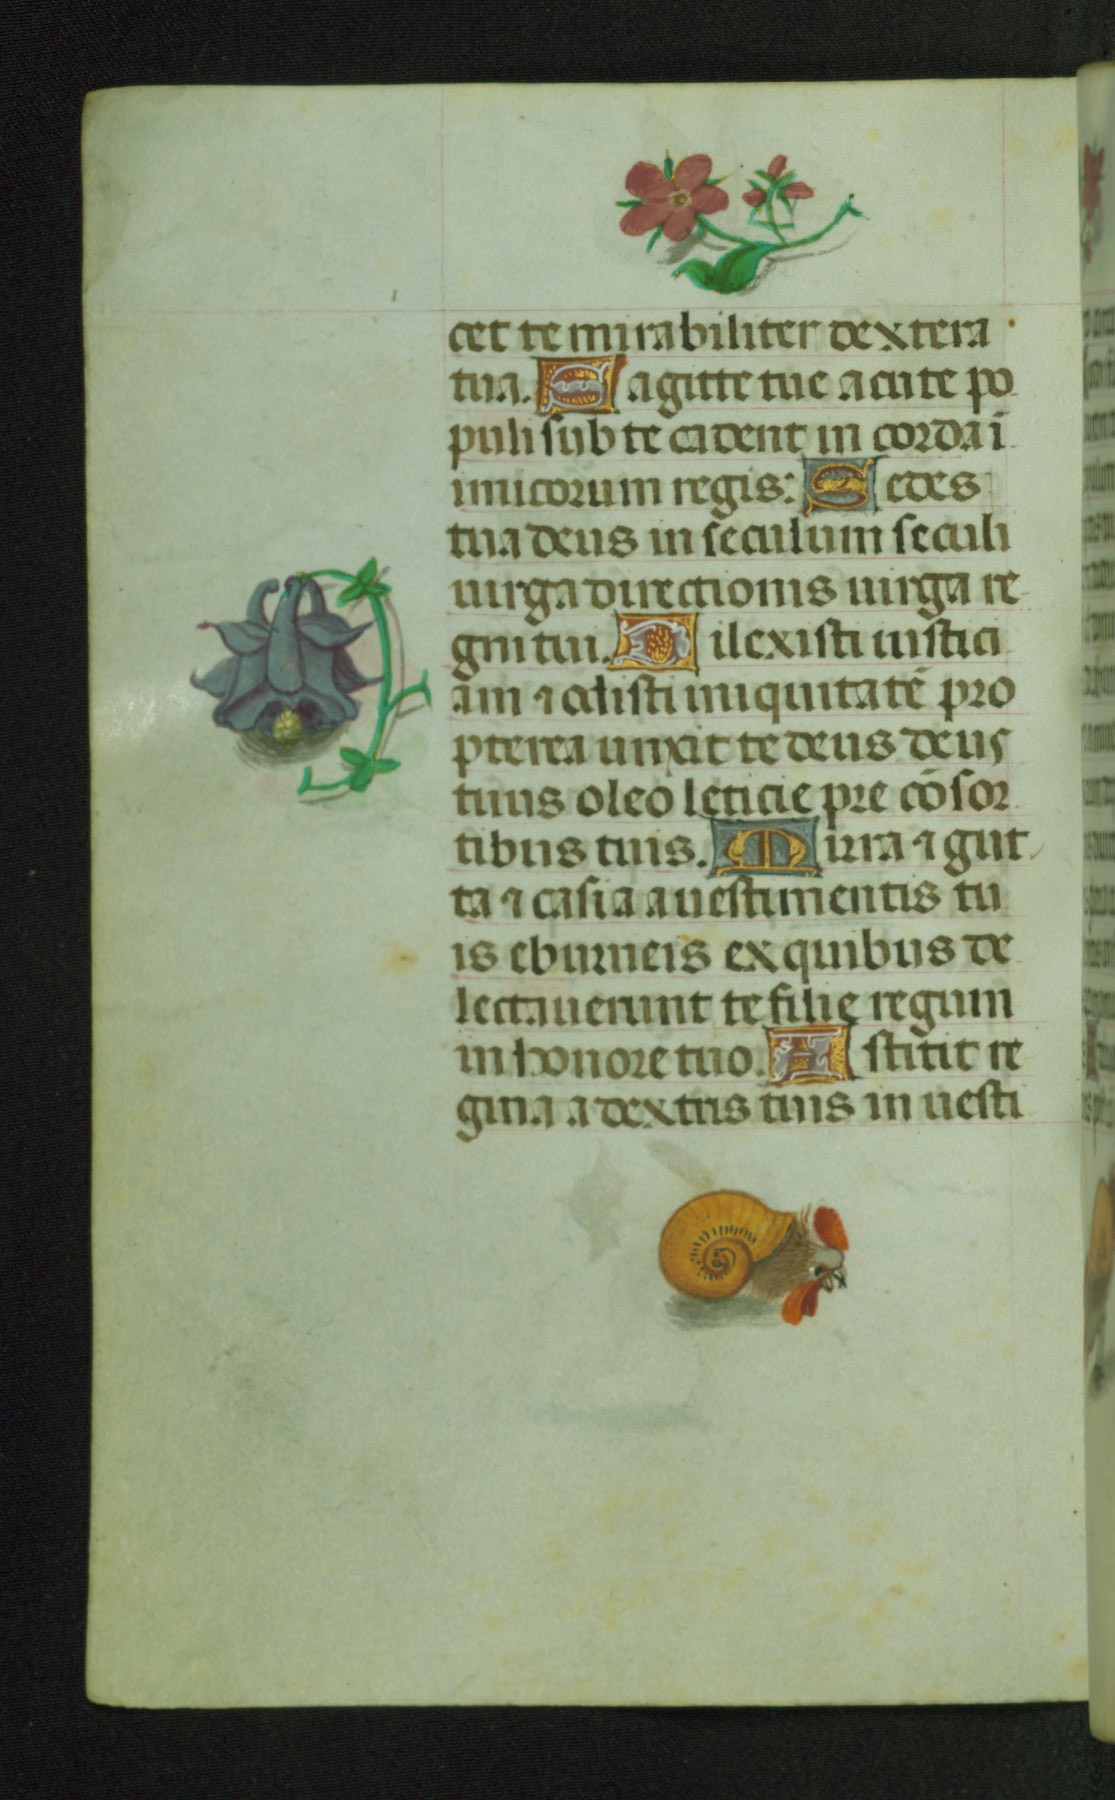 cet te mirabiliter dextera
tua. Sagitte tue acute po
puli sub te cadent in corda i
imicorum regis: Sedes
tua deus in seculum seculi
uirga directionis uirga re
gni tui. Dilexisti iustici
am ⁊ odisti iniquitatē pro
pterea unxit te deus deus
tuus oleo leticie pre cōsor
tibus tuis. Mirra ⁊ gut
ta ⁊ casia a uestimentis tu
is eburneis ex quibus de
lectauerunt te filie regum
in honore tuo. Astitit re
gina a dextris tuis in uesti